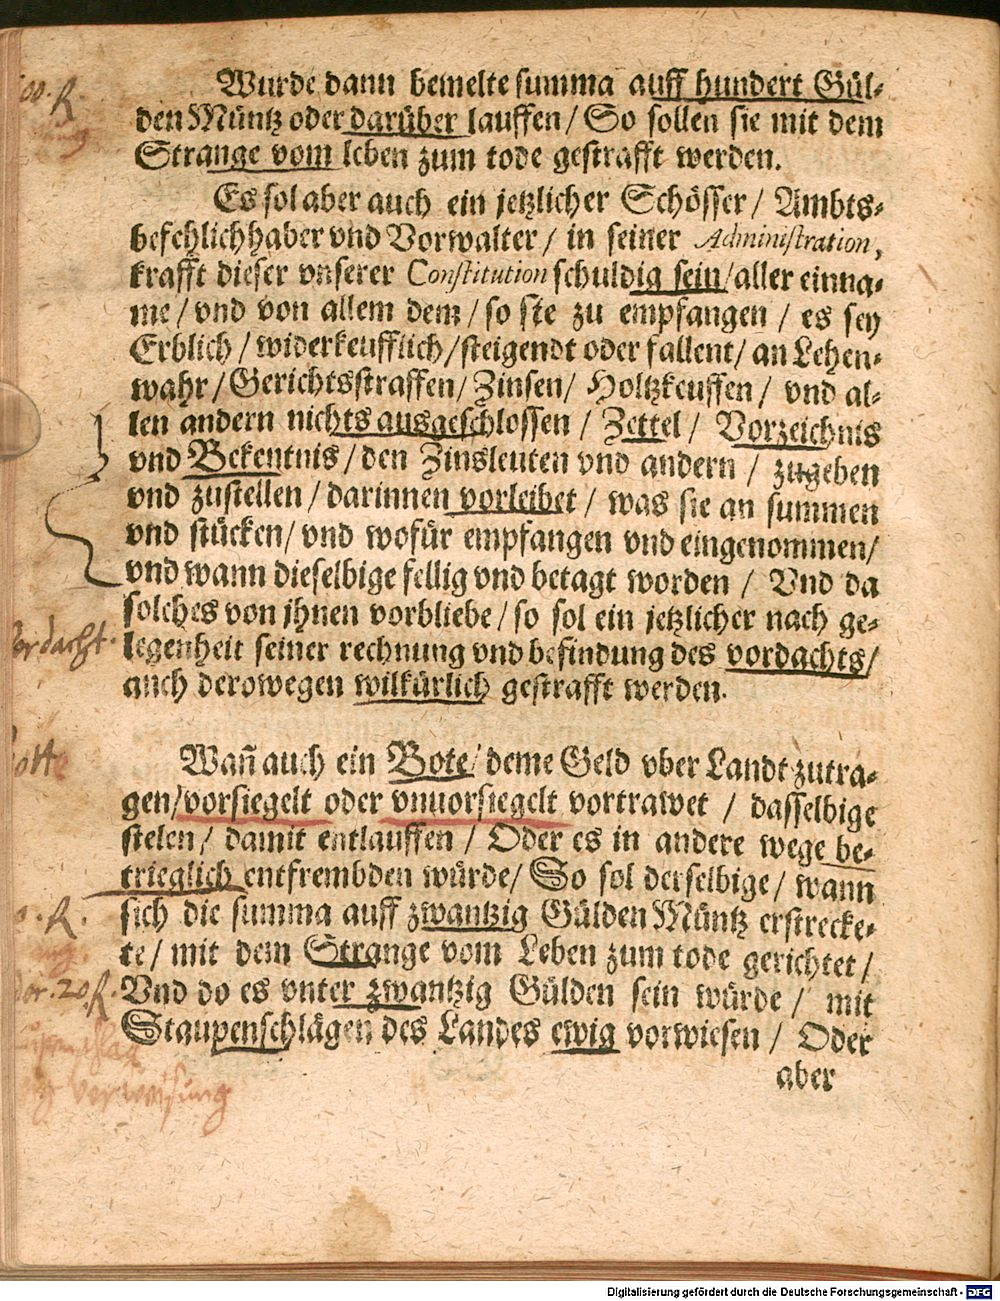 Wurde dann bemelte summa auff hundert Gül-
den Müntz oder darüber lauffen / So sollen sie mit dem
Strange vom leben zum tode gestrafft werden.
Es sol aber auch ein jetzlicher Schösser / Ambts-
befehlichhaber vnd Vorwalter / in seiner Administration,
krafft dieser vnserer Constitution schuldig sein / aller einna-
me / vnd von allem dem / so sie zu empfangen / es sey
Erblich / widerkeufflich / steigendt oder fallent / an Lehen-
wahr / Gerichtsstraffen / Zinsen / Holtzkeuffen / vnd al-
len andern nichts ausgeschlossen / Zettel / Vorzeichnis
vnd Bekentnis / den Zinsleuten vnd andern / zugeben
vnd zustellen / darinnen vorleibet / was sie an summen
vnd stücken / vnd wofür empfangen vnd eingenommen /
vnd wann dieselbige fellig vnd betagt worden / Vnd da
solches von jhnen vorbliebe / so sol ein jetzlicher nach ge-
legenheit seiner rechnung vnd befindung des vordachts /
auch derowegen wilkürlich gestrafft werden.
Wañ auch ein Bote / deme Geld vber Landt zutra-
gen / vorsiegelt oder vnuorsiegelt vortrawet / dasselbige
stelen / damit entlauffen / Oder es in andere wege be-
trieglich entfrembden würde / So sol derselbige / wann
sich die summa auff zwantzig Gülden Müntz erstrecke-
te / mit dem Strange vom Leben zum tode gerichtet /
Vnd do es vnter zwantzig Gülden sein würde / mit
Staupenschlägen des Landes ewig vorwiesen / Oder
aber
Digitalisierung gefördert durch die Deutsche Forschungsgemeinschaft - DFG